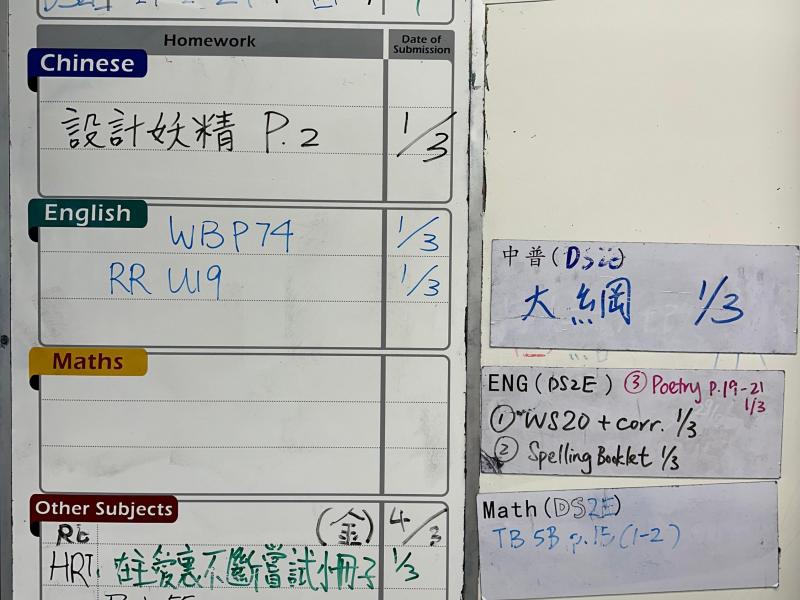 Homework
Date of Submission
Chinese
設計妖精 P.2 1/3
English
WB P74 1/3
RR U19 1/3
Maths
Other Subjects
(金) 4/3
HRT 在主愛裏不斷嘗試小冊子 1/3
中普(
大綱 1/3
ENG(DS2E) ③ Poetry p.19-21
1/3
① WS20 + corr. 1/3
② Spelling Booklet 1/3
Math(DS2E)
TB 5B p.15 (1-2)